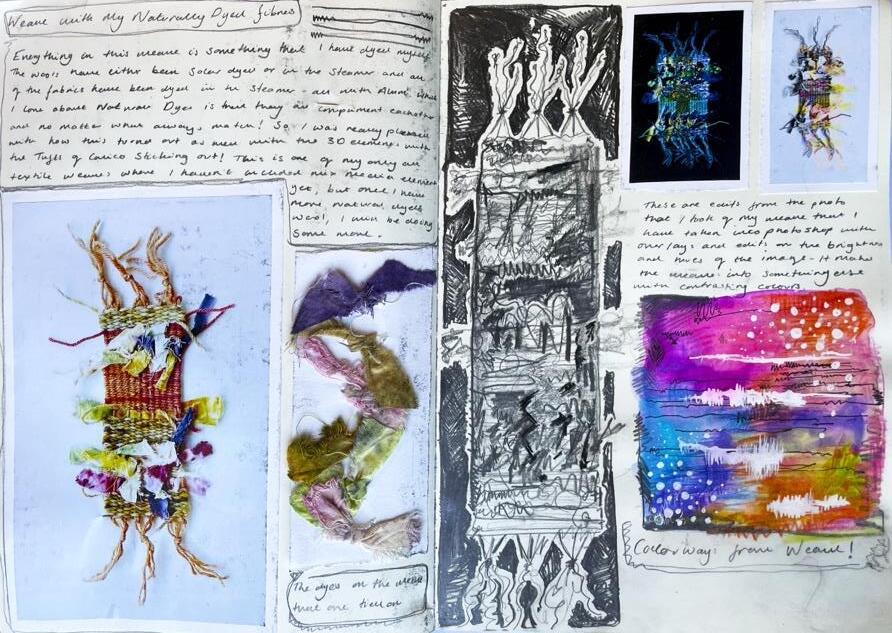 Weave with My Naturally Dyed fibres
Everything in this weave is something that I have dyed myself
The wools have either been solar dyed or in the steamer and all
of the fabrics have been dyed in the steamer - all with Alum. What
I love about Natural Dyes is that they compliment eachother
and no matter what always match! So I was really pleased
with how this turned out as well with the 3D elements with
the Tufts of Calico sticking out! This is one of my only all
textile weaves where I haven't included mix media elements
yet, but once I have
more natural dyed
wool, I will be doing
some more.
The dyes on the weave
that are tied on
These are edits from the photo
that I took of my weave that I
have taken into photoshop with
overlays and edits on the brightness
and hues of the image - It makes
the weave into something else
with contrasting colours.
Colorways from Weave!